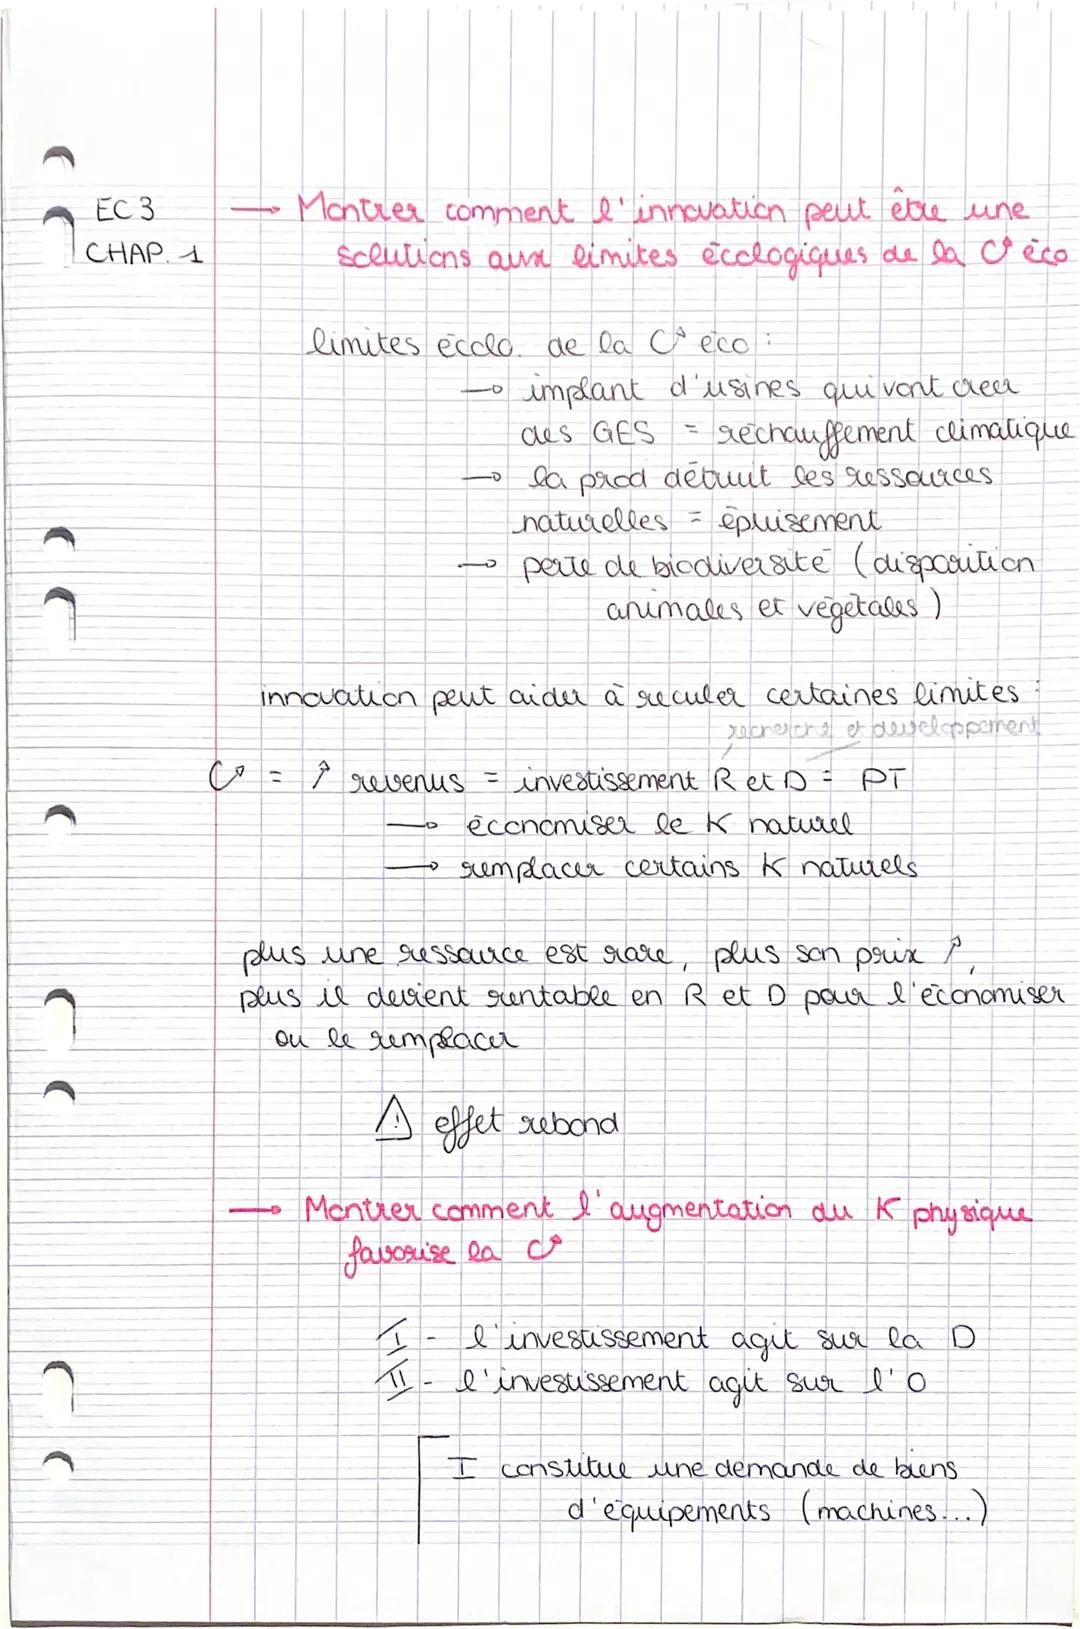 EC 3
CHAP. 1
→ Montrer comment l'innovation peut être une
solutions aux limites écologiques de la C↗ éco
limites écolo. de la C↗ éco :
→ implant d'usines qui vont creer
des GES = réchauffement climatique
→ la prod détruit les ressources
naturelles = épuisement
→ perte de biodiversité (disparition
animales et végétales)
innovation peut aider à reculer certaines limites :
recherche et developpement
C↗ = ↗ revenus = investissement R et D = PT
→ économiser le K naturel
→ remplacer certains K naturels
plus une ressource est rare, plus son prix ↗,
plus il devient rentable en R et D pour l'économiser
ou le remplacer
⚠ effet rebond
→ Montrer comment l'augmentation du K physique
favorise la C↗
I - l'investissement agit sur la D
II - l'investissement agit sur l'O
I constitue une demande de biens
d'équipements (machines...)